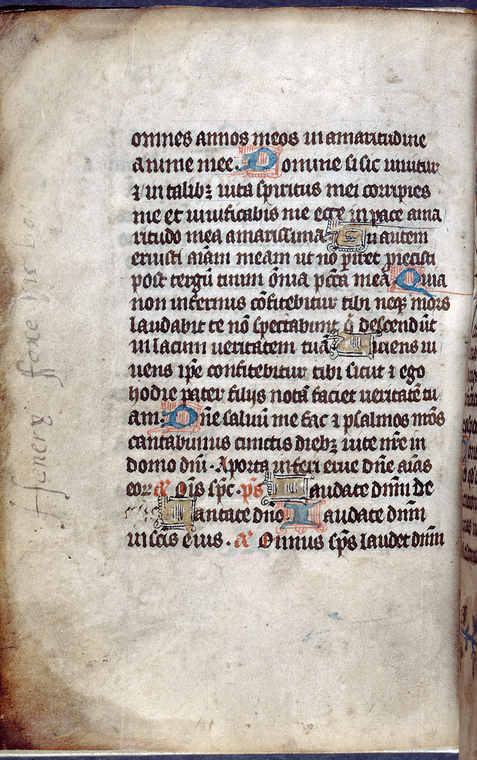 omnes annos meos in amaritudine
anime mee. Domine si sic vivitur
⁊ in talibꝫ vita spiritus mei corripies
me et vivificabis me ecce in pace ama
ritudo mea amarissima. Tu autem
eruisti aīam meam ut nō p̄iret proiecisti
post tergū tuum om̄ia pctā mea. Quia
non infernus cōfitebitur tibi neqꝫ mors
laudabit te nō spectabunt q̄ descendūt
in lacum veritatem tuā. Vivens vi
vens ip̄e confitebitur tibi sicut ⁊ ego
hodie pater filijs notā faciet veritatē tu
am. Dn̄e salvū me fac ⁊ psalmos nr̄os
cantabimus cunctis diebꝫ vite nr̄e in
domo dn̄i. A porta inferi erue dn̄e aīas
eoꝝ. añ Oīs sp̄c. ps̄ Laudate dn̄m de
Cantate dn̄o Laudate dn̄m
in scīs eius. añ Omnis sp̄s laudet dn̄m